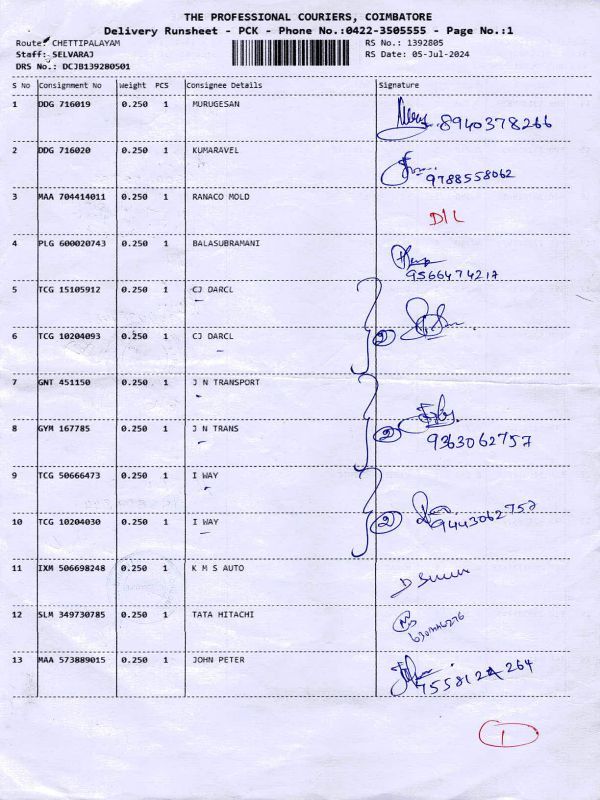 THE PROFESSIONAL COURIERS, COIMBATORE
Delivery Runsheet - PCK - Phone No.:0422-3505555 - Page No.:1
Route: CHETTIPALAYAM RS No.: 1392805
Staff: SELVARAJ RS Date: 05-Jul-2024
DRS No.: DCJB139280501
S No Consignment No Weight PCS Consignee Details Signature
1 DDG 716019 0.250 1 MURUGESAN
8940378266
2 DDG 716020 0.250 1 KUMARAVEL
9788558062
3 MAA 704414011 0.250 1 RANACO MOLD
D/L
4 PLG 600020743 0.250 1 BALASUBRAMANI
9566474217
5 TCG 15105912 0.250 1 CJ DARCL
6 TCG 10204093 0.250 1 CJ DARCL
2
7 GNT 451150 0.250 1 J N TRANSPORT
8 GYM 167785 0.250 1 J N TRANS
2 9363062757
9 TCG 50666473 0.250 1 I WAY
10 TCG 10204030 0.250 1 I WAY
2 9443062757
11 IXM 506698248 0.250 1 K M S AUTO
12 SLM 349730785 0.250 1 TATA HITACHI
13 MAA 573889015 0.250 1 JOHN PETER
1